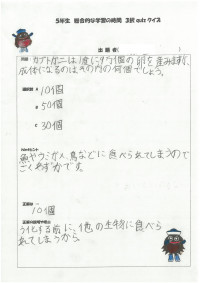 5年生 総合的な学習の時間 3択 quiz クイズ
出題者( )
問題 カブトガニは1度に約1万個の卵を産みますが、
成体になるのはその内の何個でしょう。
選択肢 A 10個
B 50個
C 30個
ヒント
魚やウミガメ、鳥などに食べられてしまうので
ごくわずかです。
正解は…
10個
うィ化する前に、他の生物に食べら
れてしまうから。